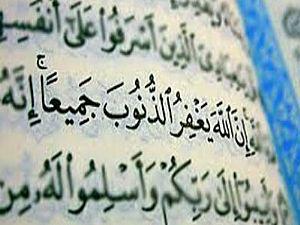 يَـٰعِبَادِىَ ٱلَّذِينَ أَسْرَفُوا۟ عَلَىٰٓ أَنفُسِ
إِنَّ ٱللَّهَ يَغْفِرُ ٱلذُّنُوبَ جَمِيعًا ۚ إِنَّهُ
وَأَنِيبُوٓا۟ إِلَىٰ رَبِّكُمْ وَأَسْلِمُوا۟ لَهُۥ مِن